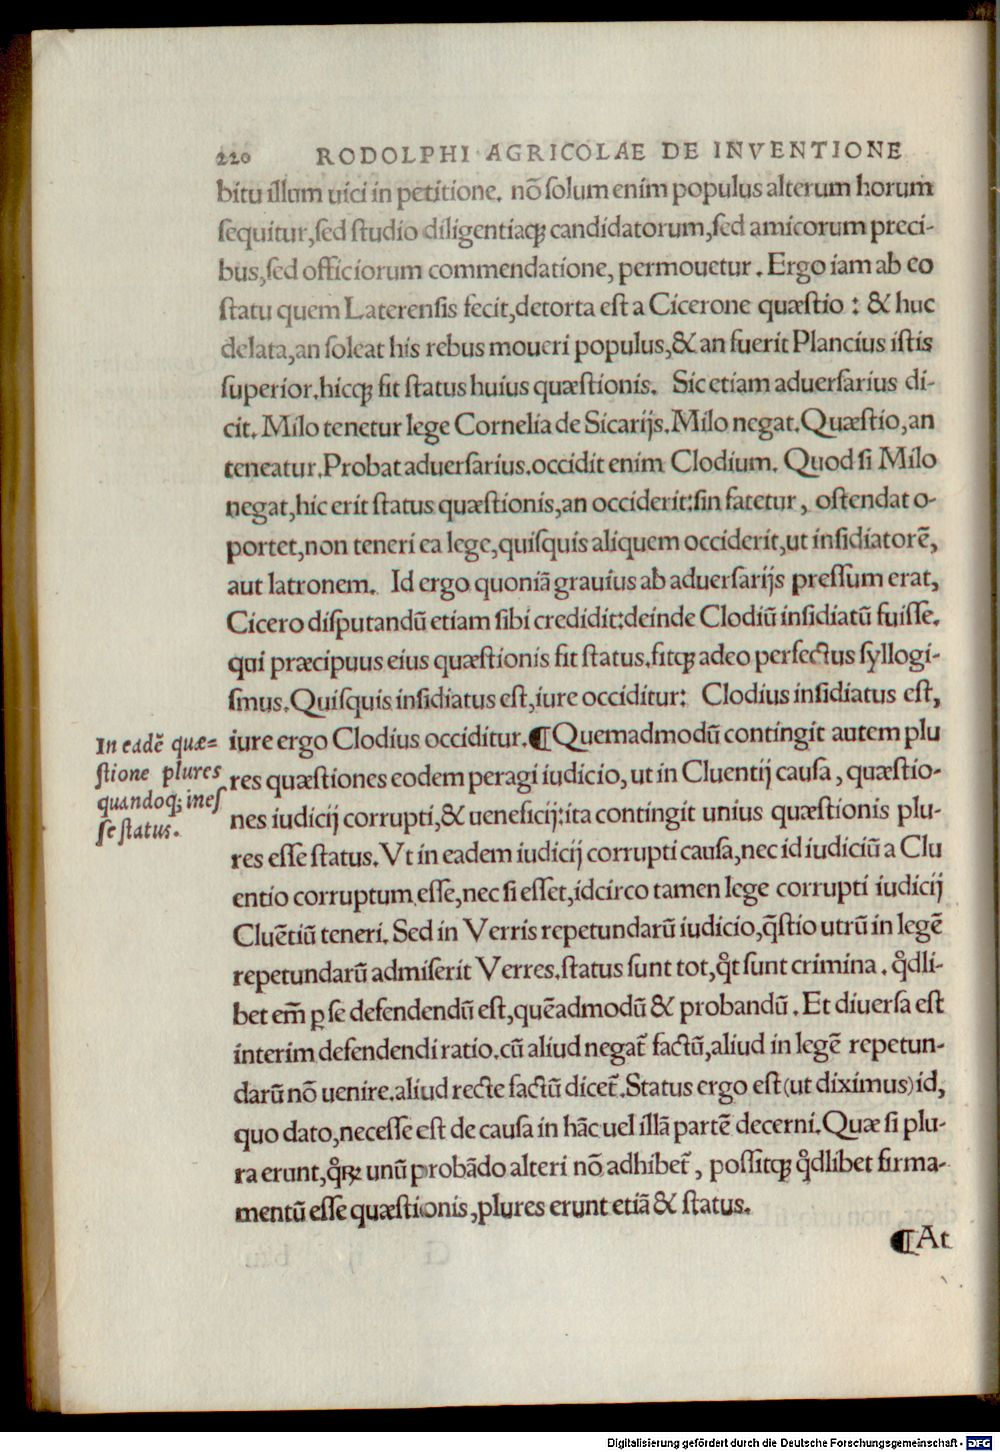 220 RODOLPHI AGRICOLAE DE INVENTIONE
bitu illum uici in petitione. nõ ſolum enim populus alterum horum
ſequitur,ſed ſtudio diligentiaqꝫ candidatorum,ſed amicorum preci-
bus,ſed officiorum commendatione, permouetur . Ergo iam ab eo
ſtatu quem Laterenſis fecit,detorta eſt a Cicerone quæſtio : & huc
delata,an ſoleat his rebus moueri populus,& an fuerit Plancius iſtis
ſuperior.hicqꝫ fit ſtatus huius quæſtionis. Sic etiam aduerſarius di-
cit. Milo tenetur lege Cornelia de Sicarijs.Milo negat.Quæſtio,an
teneatur.Probat aduerſarius.occidit enim Clodium. Quod ſi Milo
negat,hic erit ſtatus quæſtionis,an occiderit:ſin fatetur , oſtendat o-
portet,non teneri ea lege,quiſquis aliquem occiderit,ut inſidiatorẽ,
aut latronem. Id ergo quoniã grauius ab aduerſarijs preſſum erat,
Cicero diſputandũ etiam ſibi credidit:deinde Clodiũ inſidiatũ fuiſſe.
qui præcipuus eius quæſtionis fit ſtatus.fitqꝫ adeo perfectus ſyllogi-
ſmus.Quiſquis inſidiatus eſt,iure occiditur: Clodius inſidiatus eſt,
iure ergo Clodius occiditur.¶Quemadmodũ contingit autem plu
res quæſtiones eodem peragi iudicio, ut in Cluentij cauſa , quæſtio-
nes iudicij corrupti,& ueneficij:ita contingit unius quæſtionis plu-
res eſſe ſtatus.Vt in eadem iudicij corrupti cauſa,nec id iudiciũ a Clu
entio corruptum eſſe,nec ſi eſſet,idcirco tamen lege corrupti iudicij
Cluẽtiũ teneri. Sed in Verris repetundarũ iudicio,q̃ſtio utrũ in legẽ
repetundarũ admiſerit Verres.ſtatus ſunt tot,qͦt ſunt crimina . qͦdli-
bet em̃ ꝑ ſe defendendũ eſt,quẽadmodũ & probandũ . Et diuerſa eſt
interim defendendi ratio.cũ aliud negat̃ factũ,aliud in legẽ repetun-
darũ nõ uenire.aliud recte factũ dicet̃.Status ergo eſt(ut diximus)id,
quo dato,neceſſe eſt de cauſa in hãc uel illã partẽ decerni.Quæ ſi plu-
ra erunt,qͦꝝ unũ probãdo alteri nõ adhibet̃ , poſſitqꝫ qͦdlibet firma-
mentũ eſſe quæſtionis,plures erunt etiã & ſtatus.
¶At
In eadẽ quæ=
ſtione plures
quandoqꝫ ineſ
ſe ſtatus.
Digitalisierung gefördert durch die Deutsche Forschungsgemeinschaft - DFG